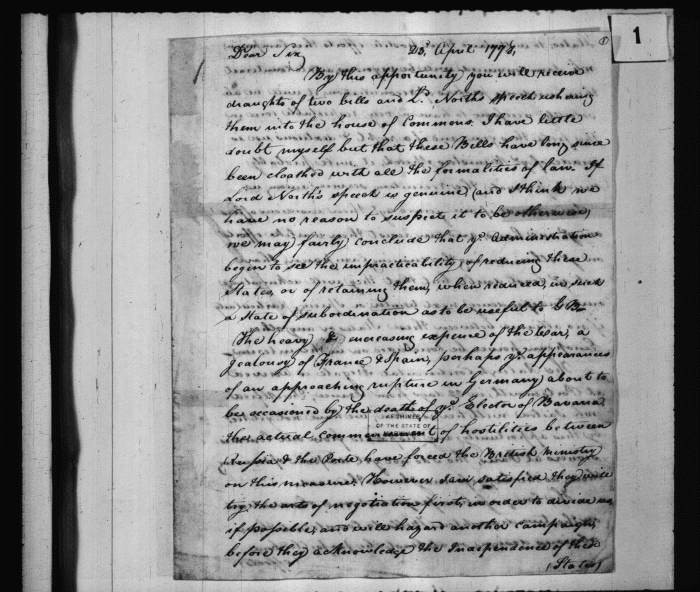 1
Dear Sir, 23d. April 1778,
By this opportunity you will receive
draughts of two bills and Ld. North's speech ushering
them into the house of Commons. I have little
doubt myself but that these Bills have long since
been cloathed with all the formalities of law. If
Lord North's speech is genuine, (and I think we
have no reason to suspect it to be otherwise,)
we may fairly conclude that ye. Administration
begin to see the impracticability of reducing these
States, or of retaining them, when reduced, in such
a State of subordination as to be useful to G B—
The heavy & increasing expense of the war, a
jealousy of France & Spain, perhaps ye. appearances
of an approaching rupture in Germany, about to
be occasioned by the death of ye. Elector of Bavaria,
the actual commencement of hostilities between
Russia & the Porte have forced the British ministry
on this measure. However I am satisfied they will
try the arts of negotiation first, in order to divide us
if possible, and will hazard another campaign,
before they acknowledge the Independence of these
(States)
ARCHIVES
OF THE STATE OF